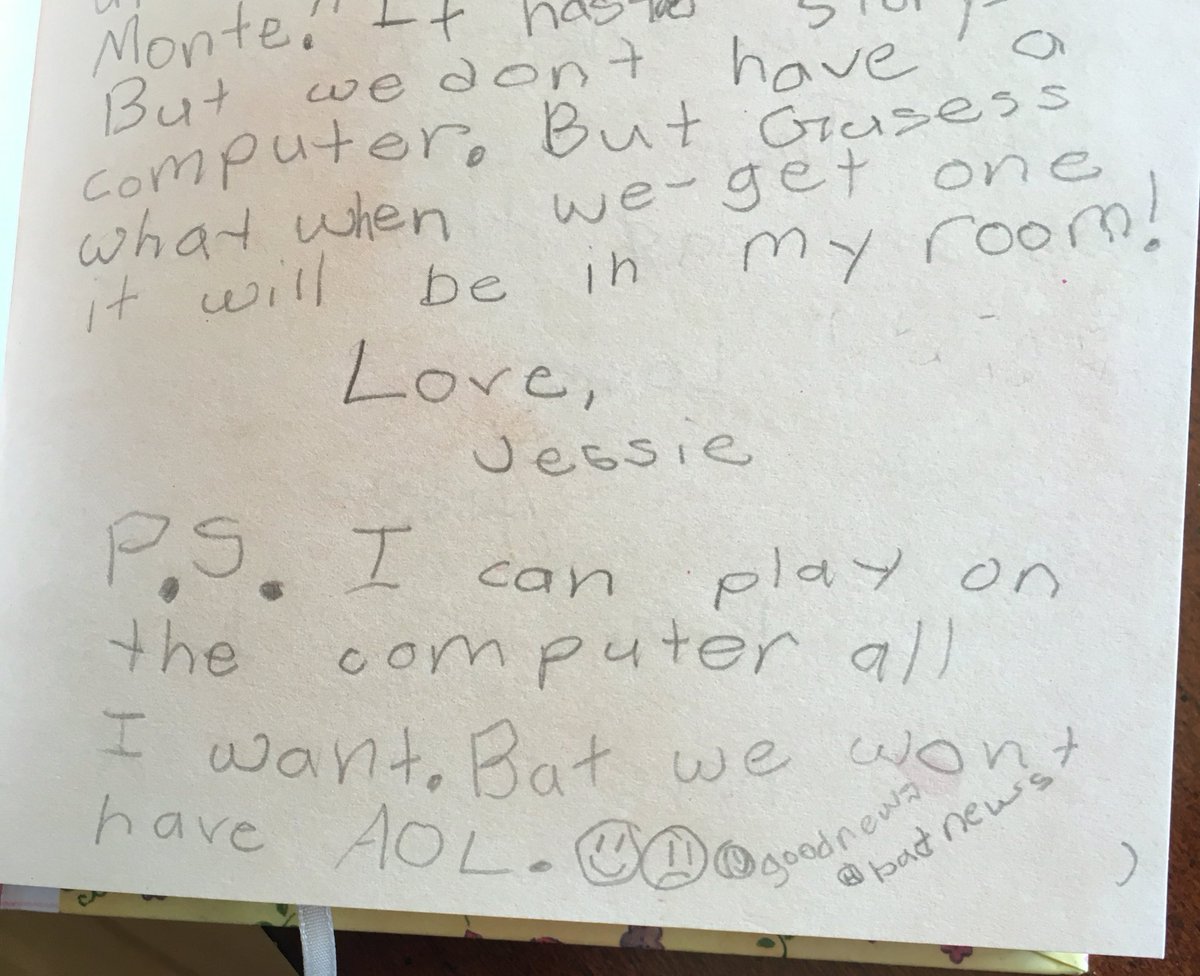 Monte!" It has
But we dont have a
computer. But Gusess
what when we-get one
it will be in my room!
Love,
Jessie
P.S. I can play on
the computer all
I want. Bat we wont
have AOL. @goodnews
@bad news